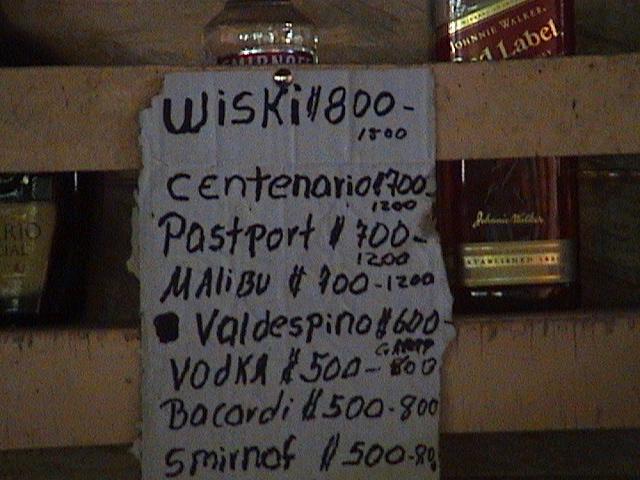 SMIRNOFF
JOHNNIE WALKER
Red Label
WiSKi $800-
1500
CENtENARio $700-
1200
PAStPORt $700-
1200
MALiBU $700-1200
VAldESPiNO $600-
VOdKA $500-800
BACARdi $500-800
SMiRNOf $500-80
Johnnie Walker
ESTABLISHED 182
RIO
IAL